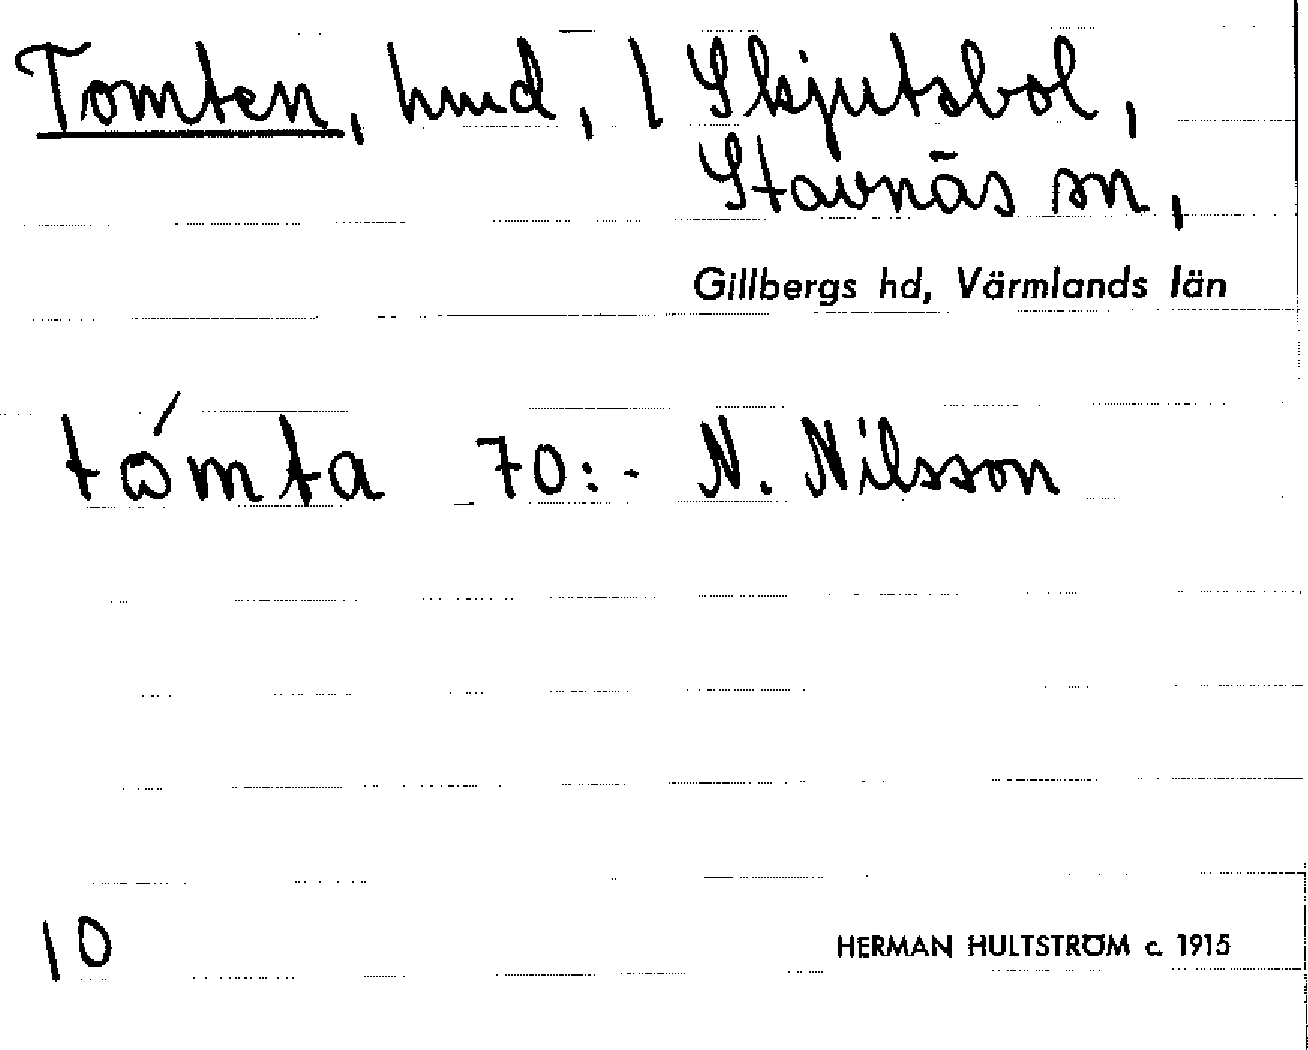 Tomten, hmd, 1 Skjutsbol,
Stavnäs sn,
Gillbergs hd, Värmlands län
tώmta 70:- N. Nilsson
10
HERMAN HULTSTRÖM c. 1915